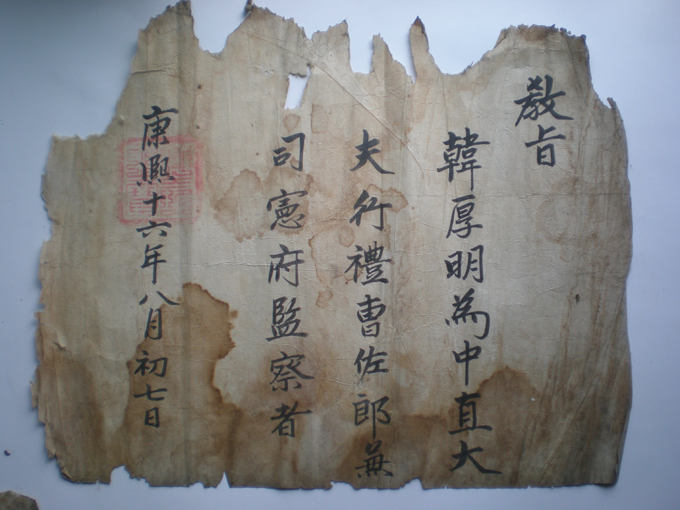 敎旨
韓厚明為中直大
夫行禮曺佐郎兼
司憲府監察者
康熙十六年八月初七日